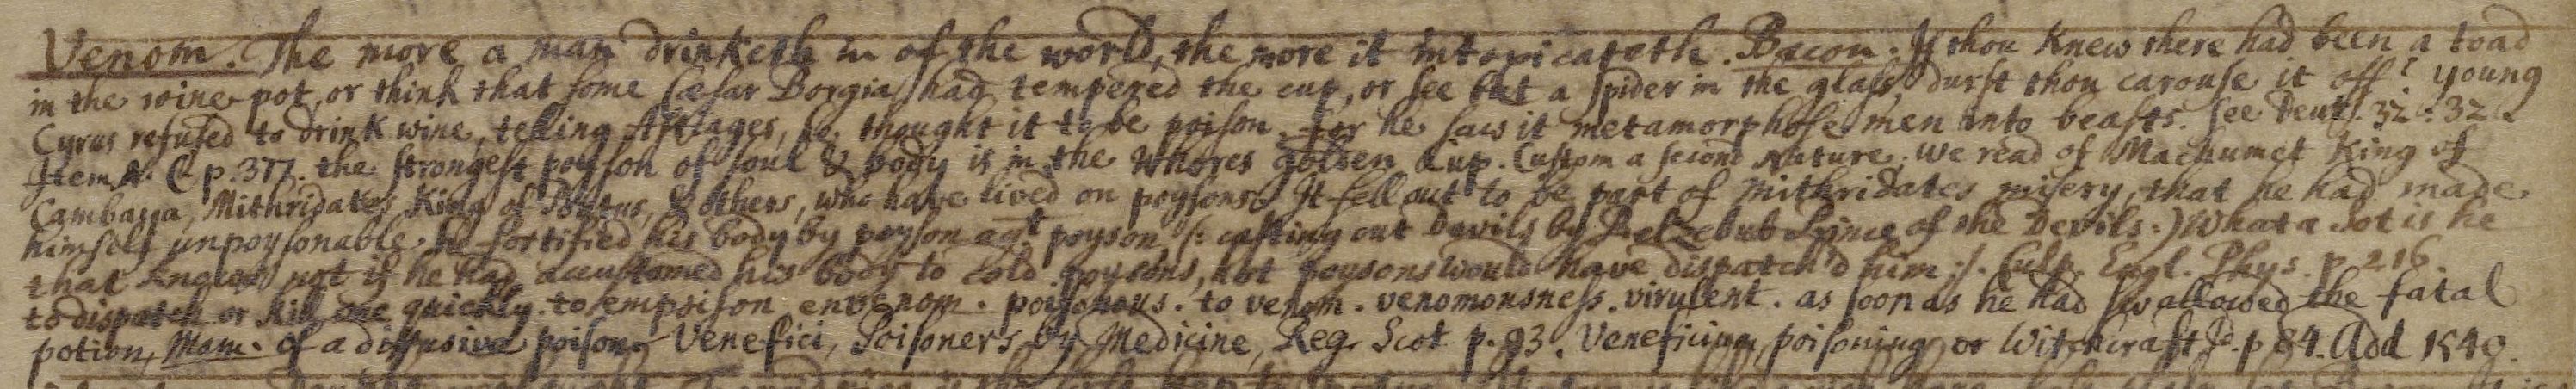 Venom. The more a man drinketh in of the world, the more it intoxicateth. Bacon. If thou knew there had been a toad
in the wine pot, or think that some Cæsar Borgia had tempered the cup, or see but a spider in the glass, durst thou carouse it off? young
Cyrus refused to drink wine, telling Astiages, he thought it to be poison, for he saw it metamorphose men into beasts. see Deut. 32. 32.
Item A. C p. 377. the strongest poyson of soul & body is in the Whores golden cup. Custom a second Nature. We read of Machumet King of
Cambaya, Mithridates King of Pontus, & others, who have lived on poysons. It fell out to be part of Mithridates misery, that he had made
himself unpoysonable. he fortified his body by poyson agt poyson (: casting out Devils by Belzebub Prince of the Devils :) What a sot is he
that knows not if he had accustomed his body to cold poysons, hot poysons would have dispatch'd him :/. Culp. Engl. Phys. p. 216.
to dispatch or kill one quickly. to empoison envenom. poisonous. to venom. venomousness. virulent. as soon as he had swallowed the fatal
potion, Mam. of a diffusive poison. Venefici, Poisoners by Medicine, Reg. Scot p. 93. Veneficium, poisoning or Witchcraft Id. p 84. Add 1549.